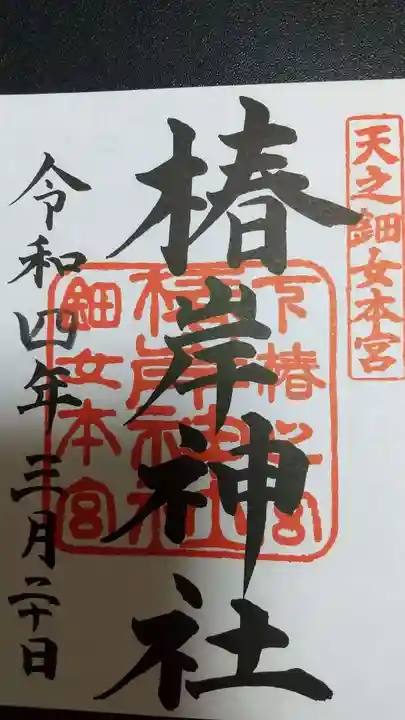 天之鈿女本宮
椿岸神社
令和四年三月二十日
鈿女本宮